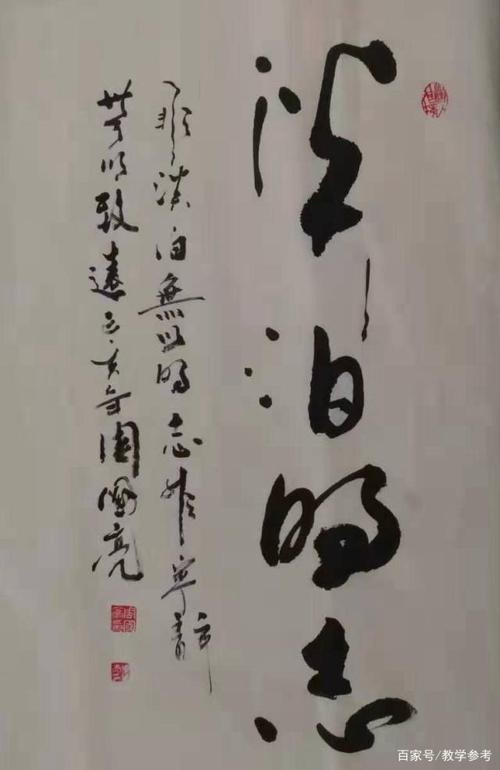 淡泊明志
非淡泊無以明志非寧靜
以致遠己亥年周國亮
百家号/教学参考